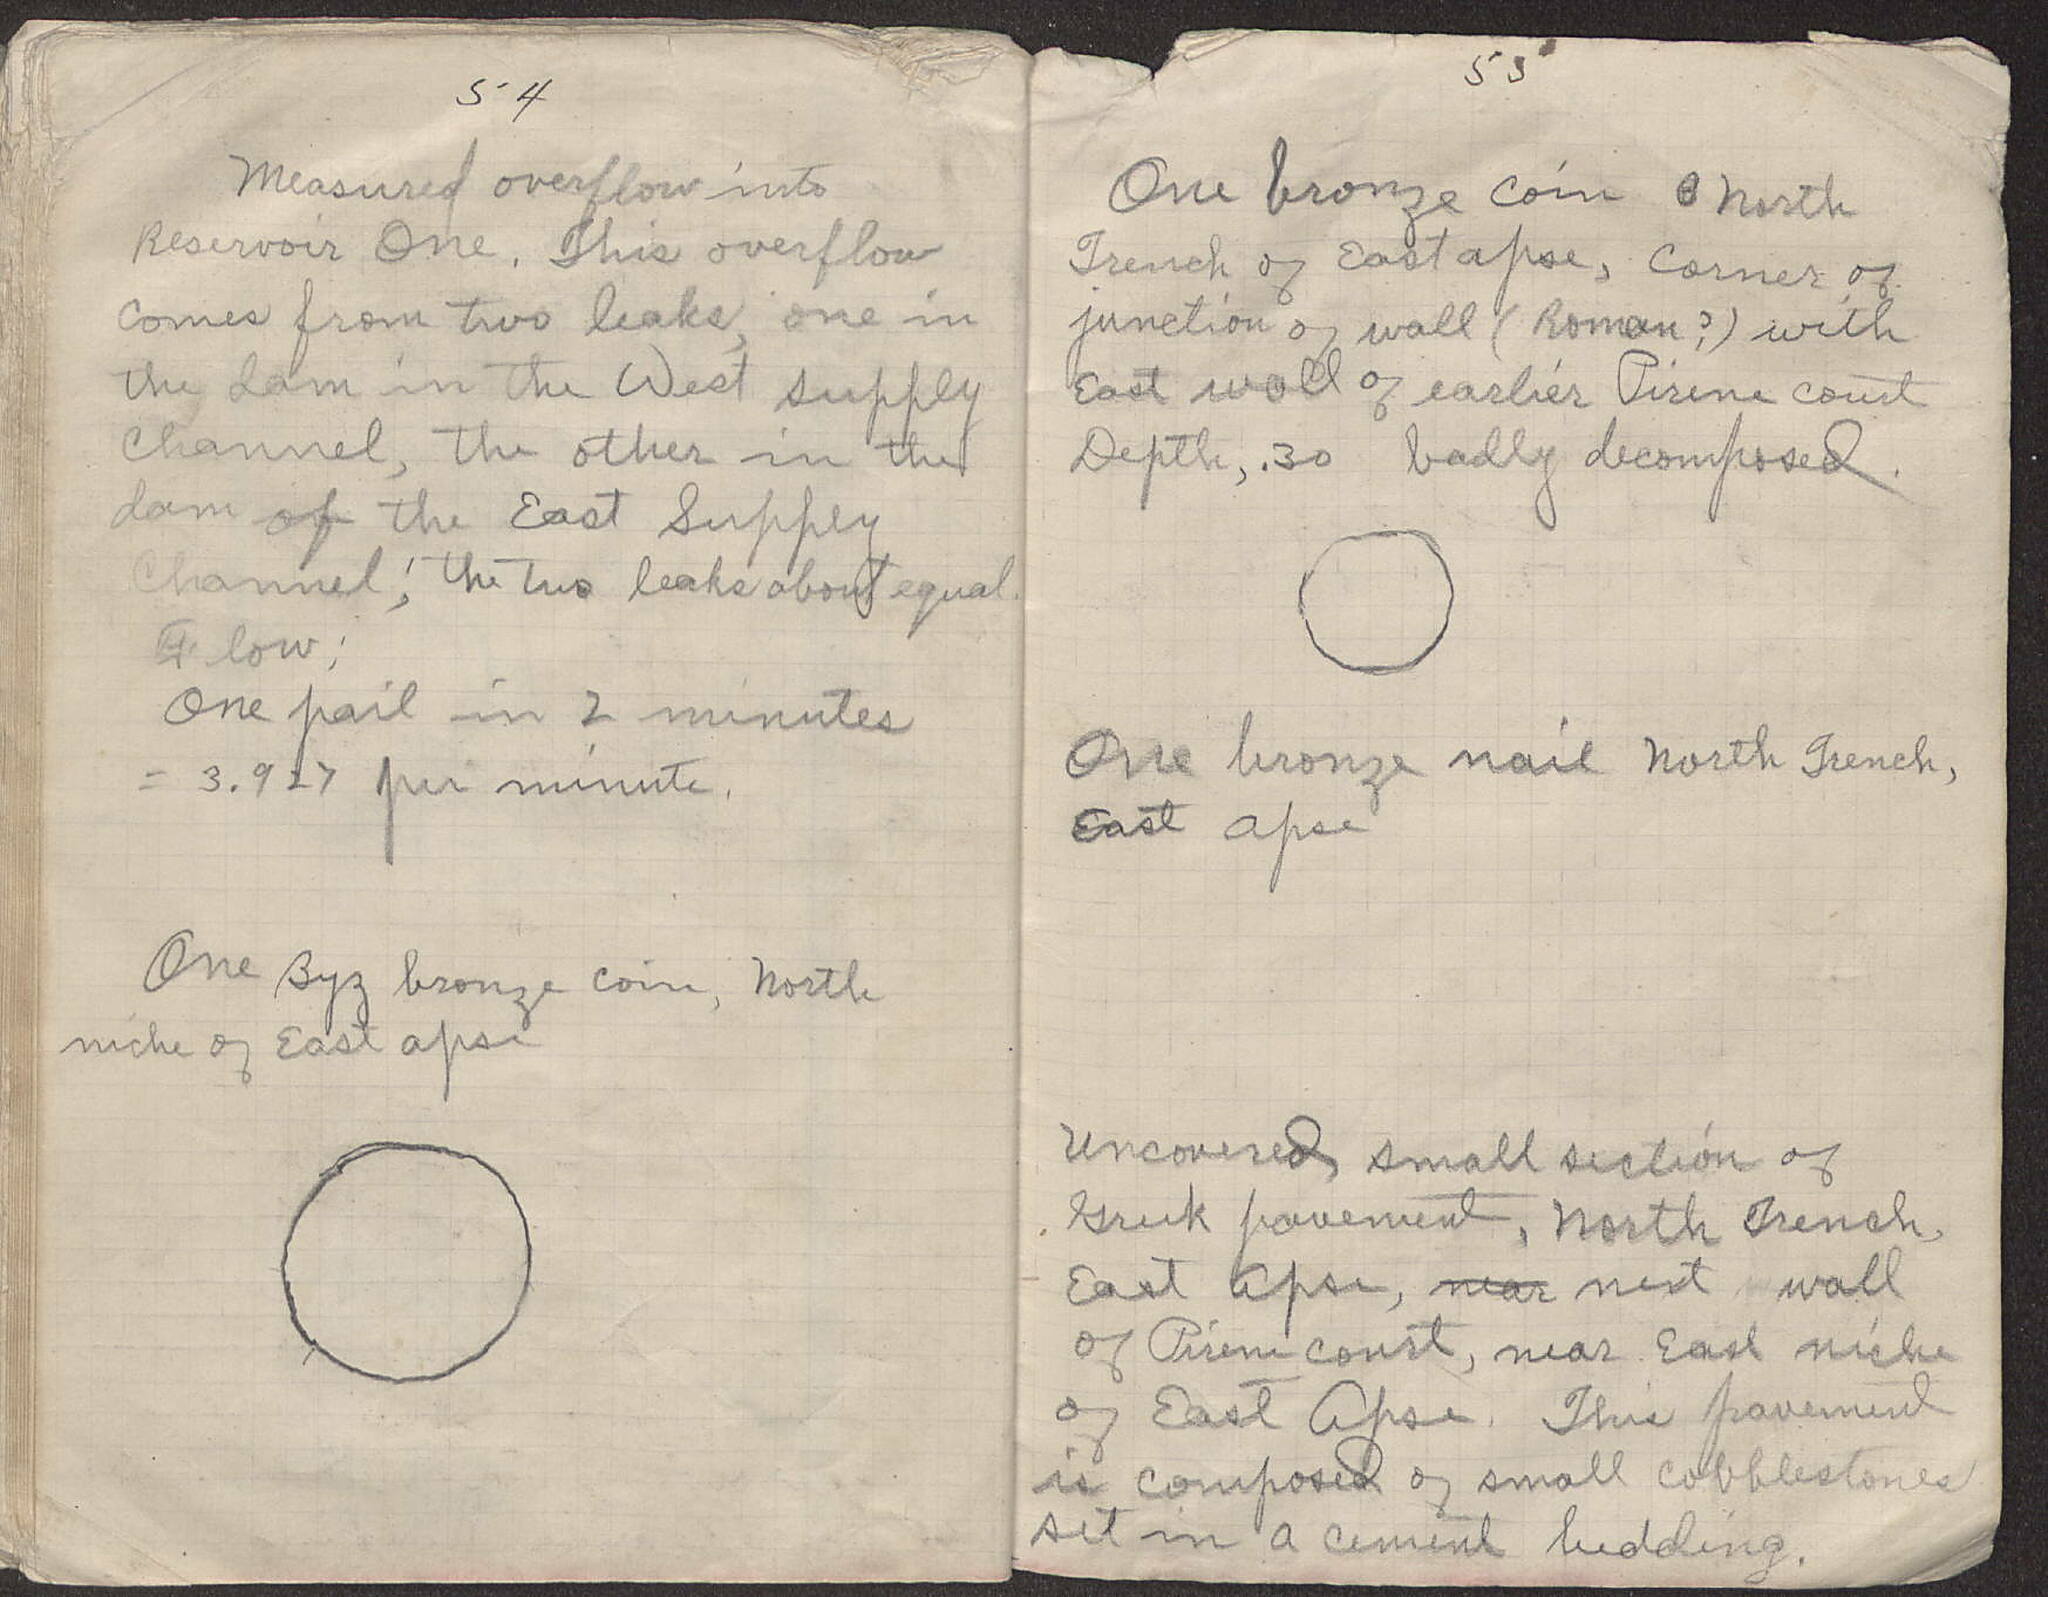 54
Measured overflow into
Reservoir One. This overflow
comes from two leaks, one in
the dam in the West supply
Channel, the other in the
dam of the East Supply
Channel; the two leaks about equal.
Flow;
One pail in 2 minutes
= 3.927 per minute.
One Byz bronze coin, North
niche of East apse
55
One bronze coin North
Trench of East apse, corner of
junction of wall (Roman?) with
East wall of earlier Pirene court
Depth, .30 badly decomposed.
One bronze nail North Trench,
East apse
Uncovered, small section of
Greek pavement, North Trench,
East Apse, near next wall
of Pirene court, near East niche
of East Apse. This pavement
is composed of small cobblestones
set in a cement bedding.